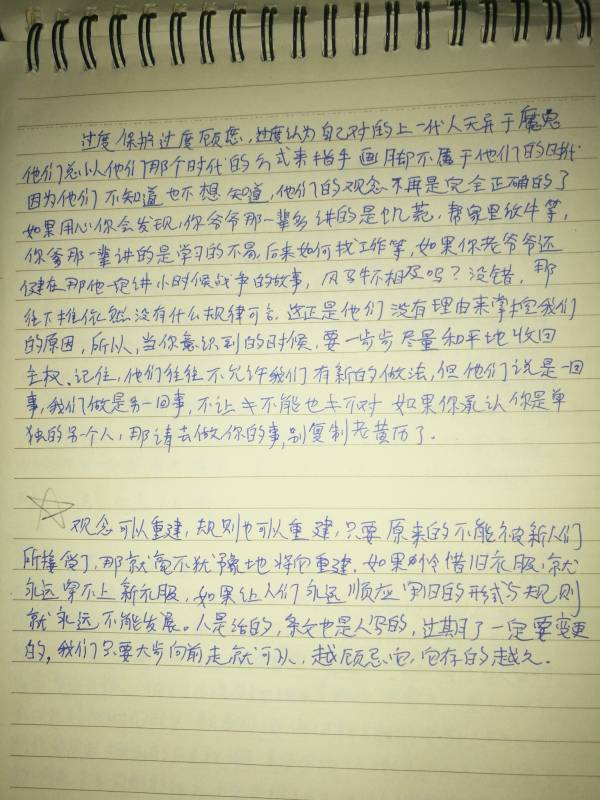 过度保护过度顾虑,过度认为自己对的上一代人无异于魔鬼
他们总以他们那个时代的方式来指手画脚不属于他们的时代
因为他们不知道也不想知道,他们的观念不再是完全正确的了
如果用心你会发现,你爷爷那一辈多讲的是饥荒,帮家里放牛等,
你爹那一辈讲的是学习的不易,后来如何找工作等,如果你老爷爷还
健在那他一定讲小时候战争的故事,风马牛不相及吗?没错,那
往下推依然没有什么规律可言,这正是他们没有理由来掌控我们
的原因,所以,当你意识到的时候,要一步步尽量和平地收回
主权、记住,他们往往不允许我们有新的做法,但他们说是一回
事,我们做是另一回事,不让≠不能也≠不对 如果你承认你是单
独的另个人,那请去做你的事,别复制老黄历了.
观念可以重建,规则也可以重建,只要原来的不能被新人们
所接受了,那就毫不犹豫地将它重建.如果怜惜旧衣服,就
永远穿不上新衣服,如果让人们永远顺应旧的形式与规则
就永远不能发展。人是活的,条文也是人写的,过期了一定要变更
的,我们只要大步向前走就可以,越顾忌它,它存的越久.